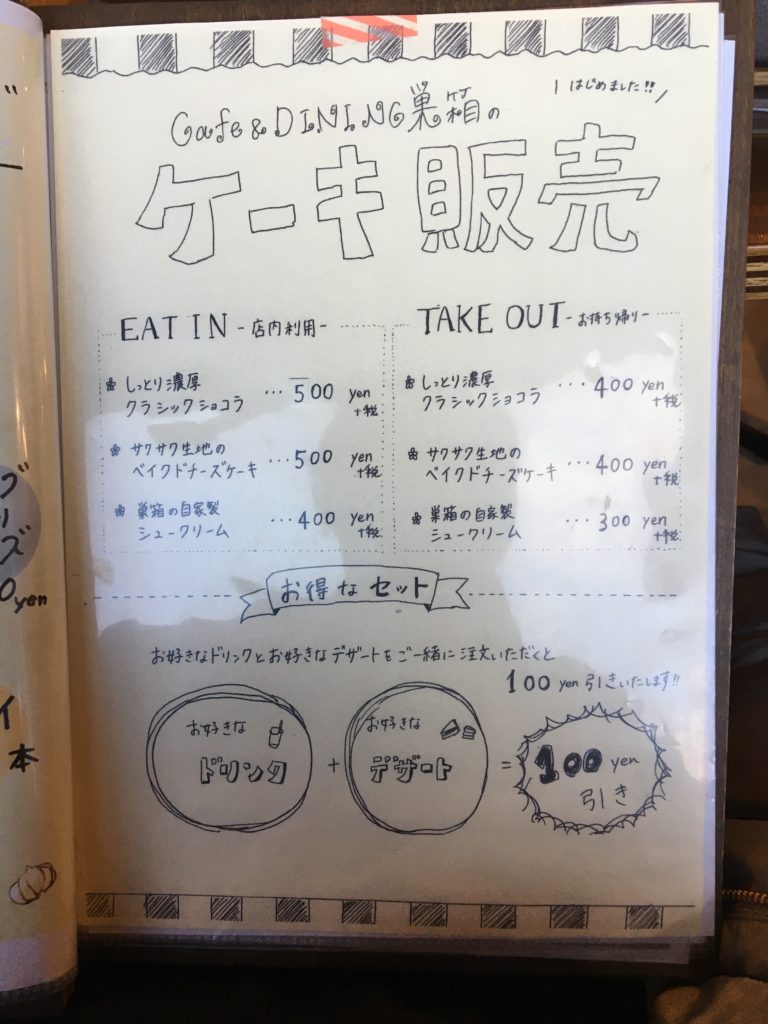 はじめました!!
Cafe & DINING 巣箱の
ケーキ販売
EAT IN -店内利用-
しっとり濃厚
クラシックショコラ …500 yen
+税
サクサク生地の
ベイクドチーズケーキ …500 yen
+税
巣箱の自家製
シュークリーム …400 yen
+税
TAKE OUT -お持ち帰り-
しっとり濃厚
クラシックショコラ …400 yen
+税
サクサク生地の
ベイクドチーズケーキ …400 yen
+税
巣箱の自家製
シュークリーム …300 yen
+税
お得なセット
お好きなドリンクとお好きなデザートをご一緒に注文いただくと
100 yen 引きいたします!!
お好きな
ドリンク
+
お好きな
デザート
=
100 yen
引き
yen
本